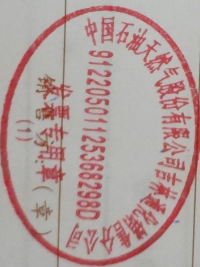 中国石油天然气股份有限公司吉林通化销售分公司
91220501125368298D
发票专用章
销售方:(章)
(1)